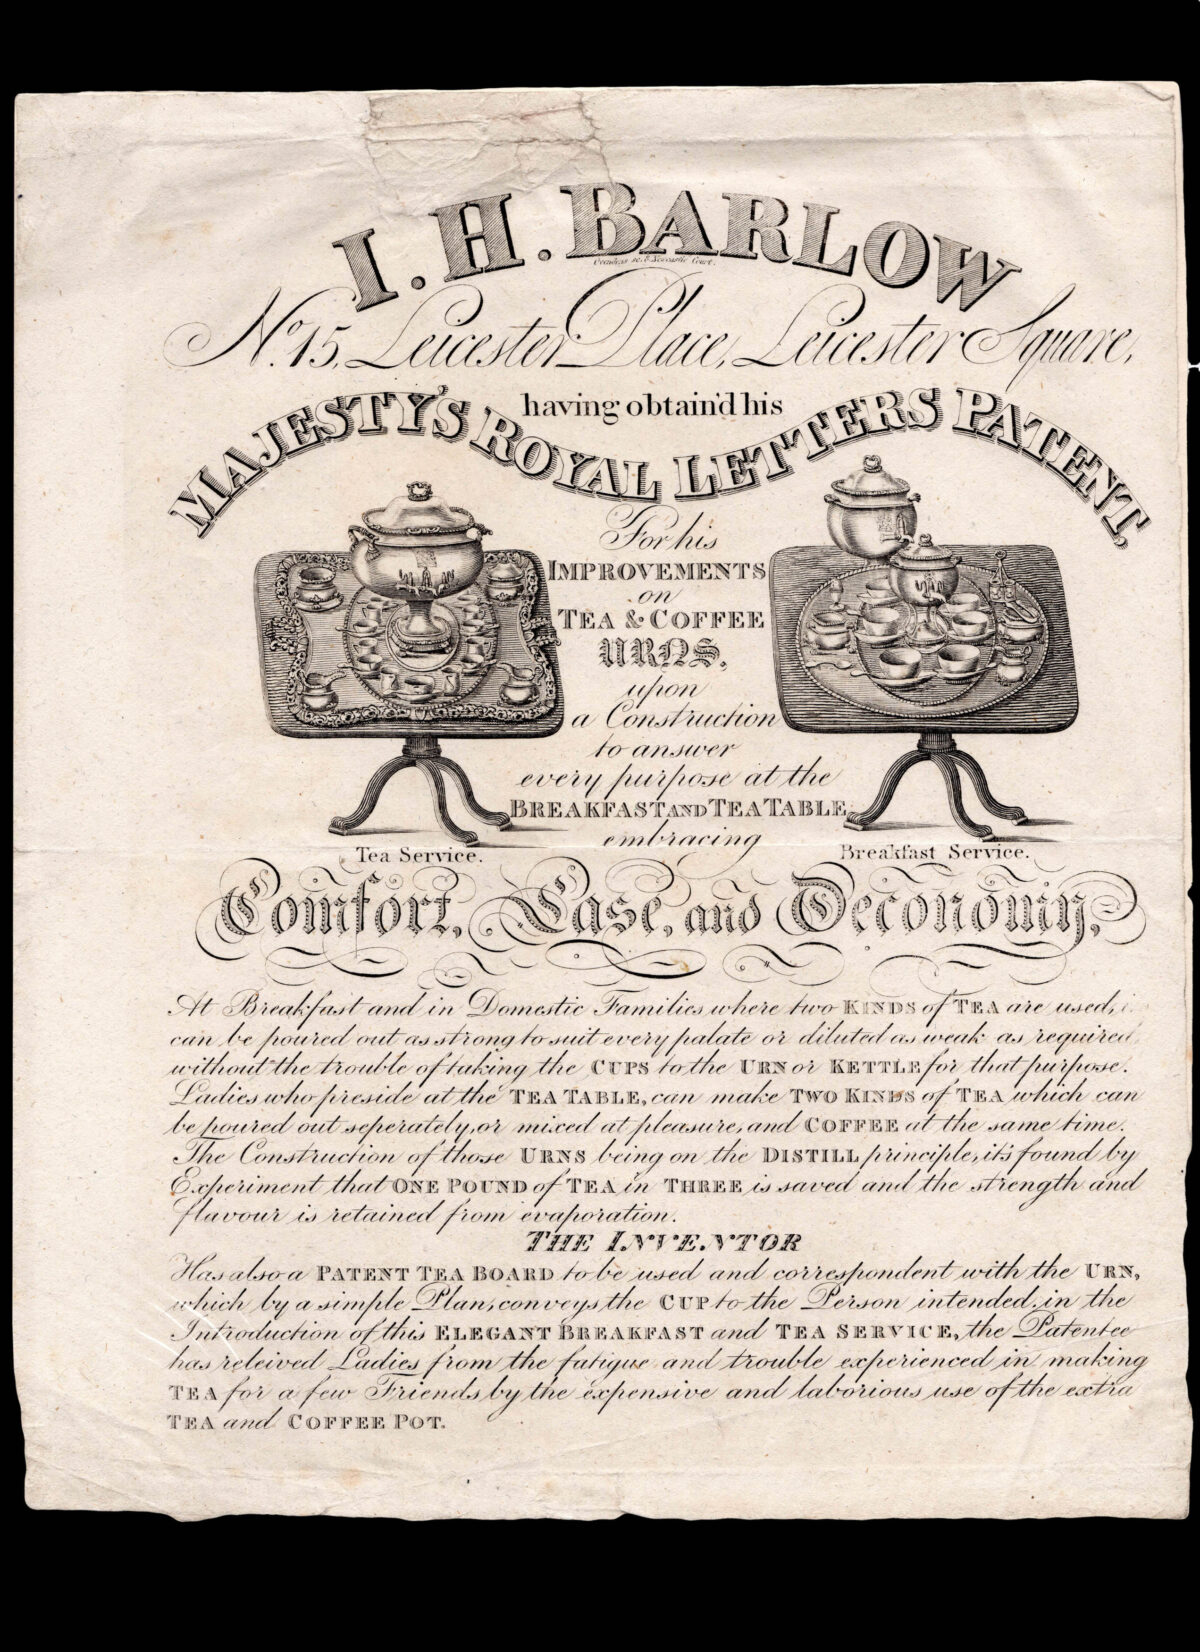 I. H. BARLOW
No. 15, Leicester Place, Leicester Square,
having obtain'd his
MAJESTY'S ROYAL LETTERS PATENT,
For his
IMPROVEMENTS
on
TEA & COFFEE
URNS,
upon
a Construction
to answer
every purpose at the
BREAKFAST AND TEA TABLE
embracing
Tea Service.
Breakfast Service.
Comfort, Ease, and Oeconomy,
At Breakfast and in Domestic Families where two KINDS of TEA are used,
can be poured out as strong to suit every palate or diluted as weak as required,
without the trouble of taking the CUPS to the URN or KETTLE for that purpose.
Ladies who preside at the TEA TABLE, can make TWO KINDS of TEA which can
be poured out seperately, or mixed at pleasure, and COFFEE at the same time.
The Construction of those URNS being on the DISTILL principle, it's found by
Experiment that ONE POUND of TEA in THREE is saved and the strength and
flavour is retained from evaporation.
THE INVENTOR
Has also a PATENT TEA BOARD to be used and correspondent with the URN,
which by a simple Plan, conveys the CUP to the Person intended, in the
Introduction of this ELEGANT BREAKFAST and TEA SERVICE, the Patentee
has releived Ladies from the fatigue and trouble experienced in making
TEA for a few Friends by the expensive and laborious use of the extra
TEA and COFFEE POT.